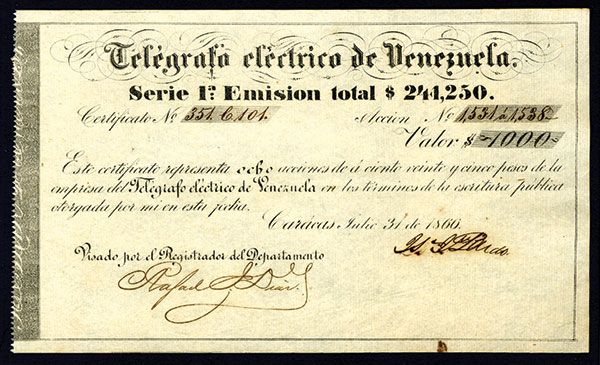 Telégrafo eléctrico de Venezuela.
Serie 1ª. Emision total $ 241,250.
Certificato Nº 351. C. 101. Accion Nº 1531 á 1538
Valor $ 1000
Este certificato representa ocho acciones de á ciento veinte y cinco pesos de la
empresa del Telégrafo eléctrico de Venezuela en los términos de la escritura pública
otorgada por mi en esta fecha.
Carácas Julio 31 de 1860.
Visado por el Registrador del Departamento
Rafael J. Diaz